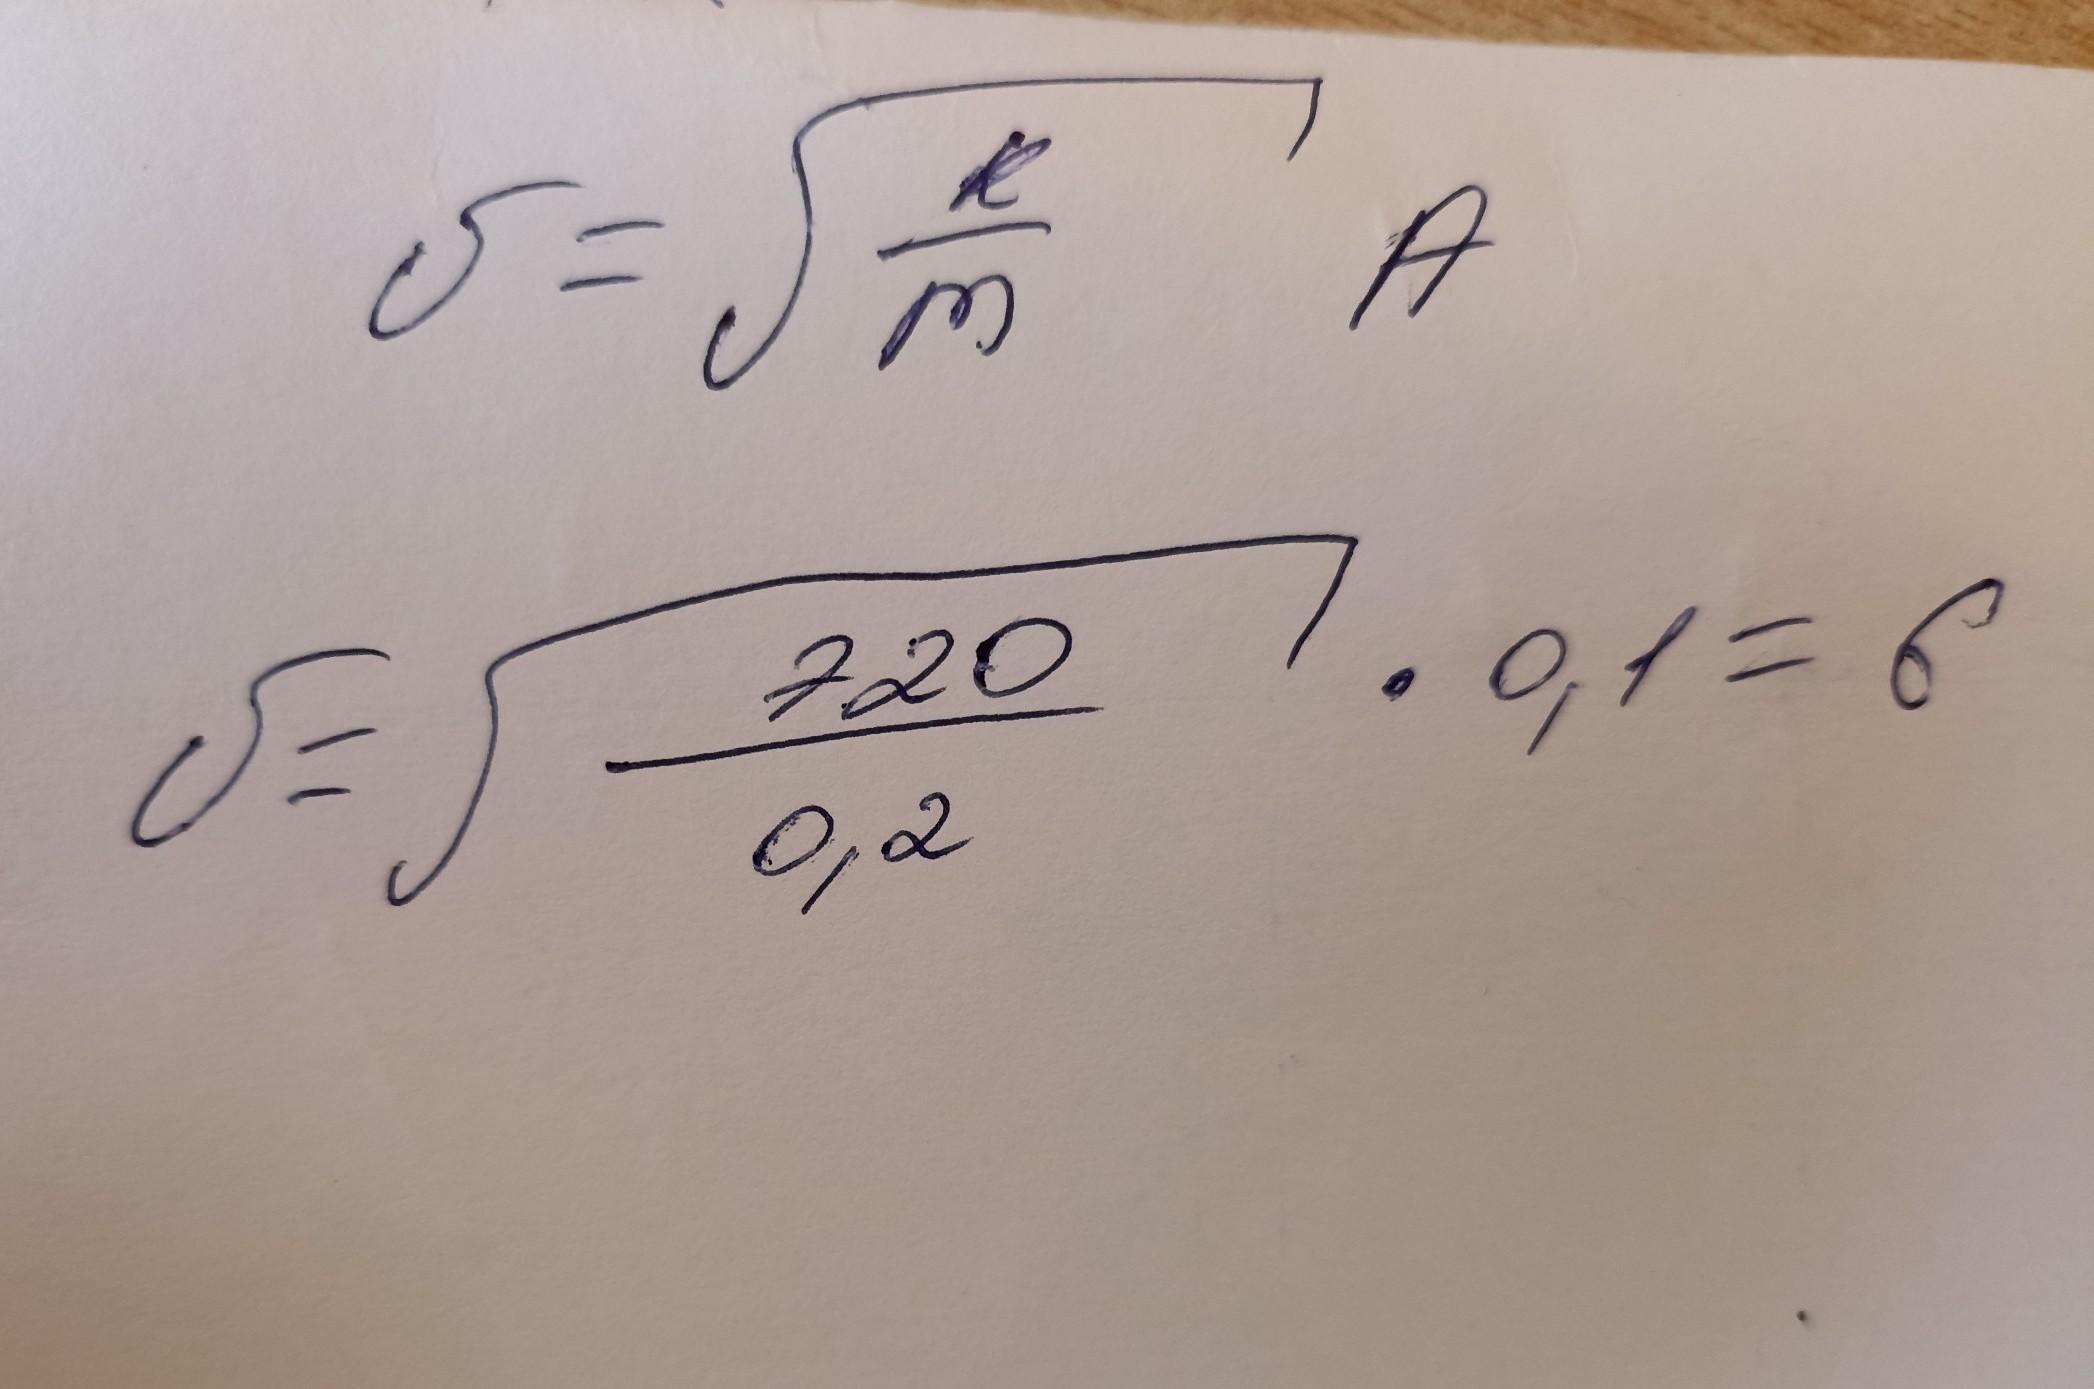 υ = √(k/m) A
υ = √(720/0,2) · 0,1 = 6